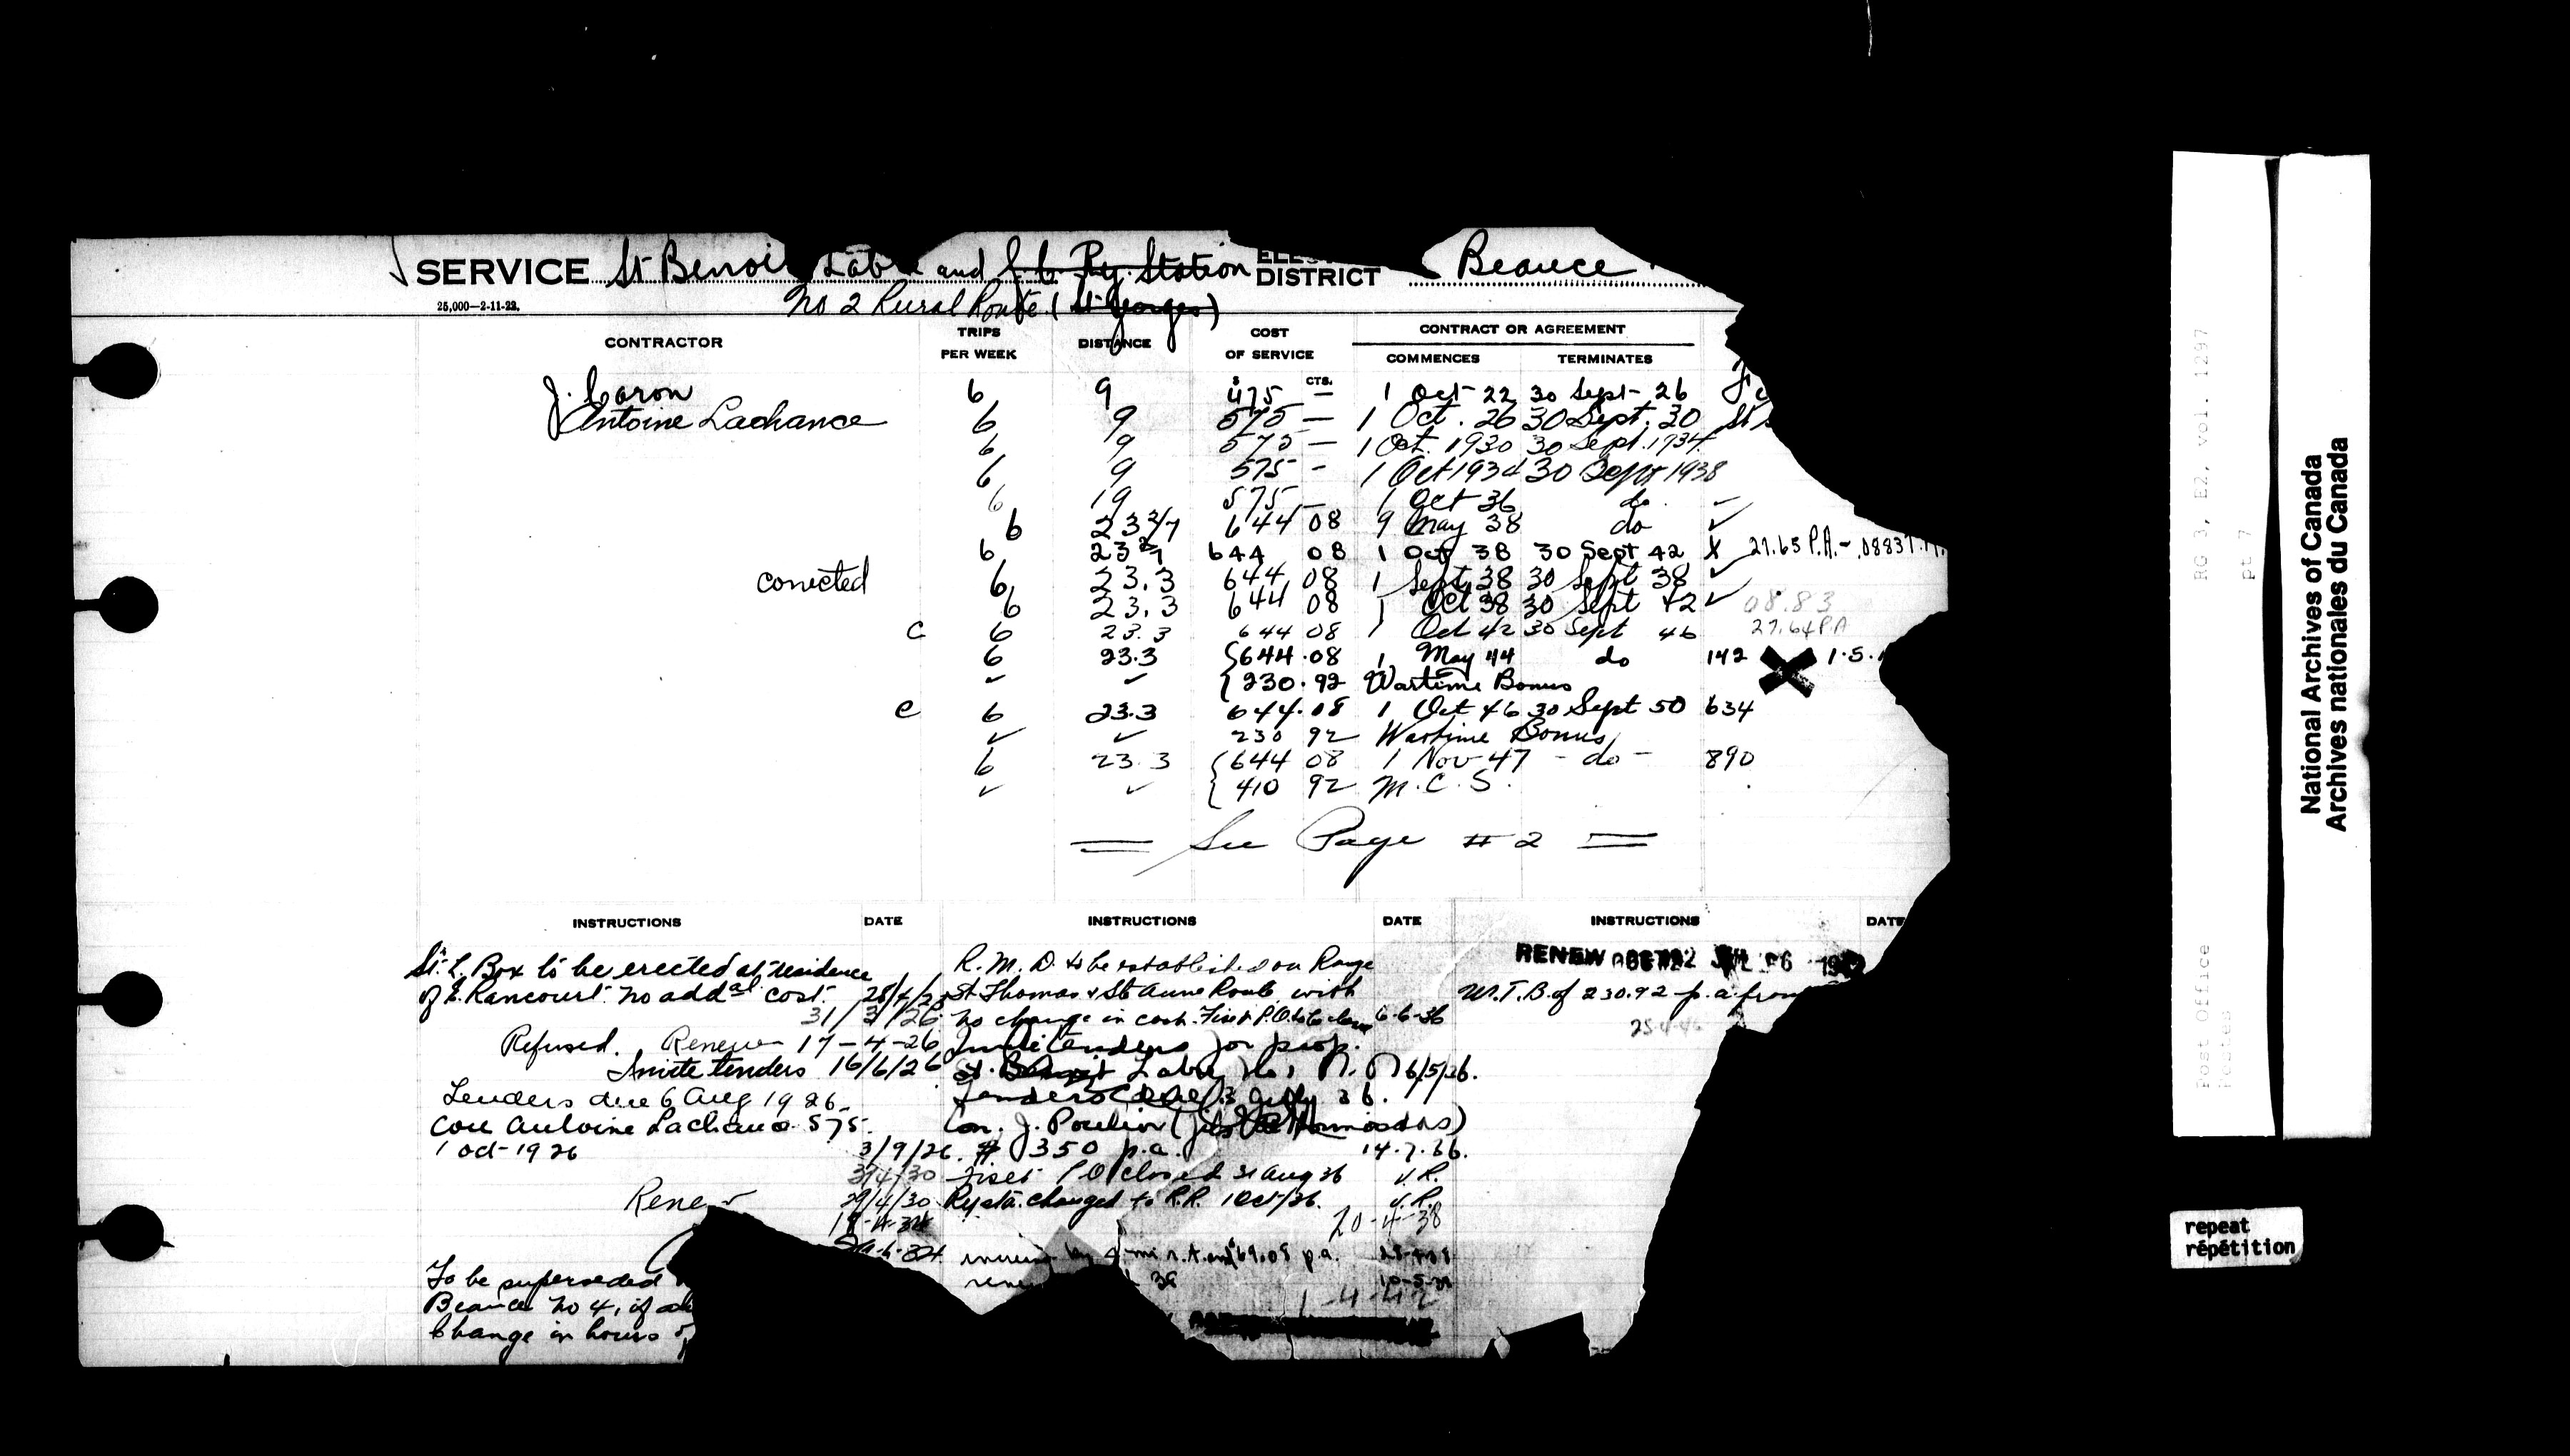 SERVICE St Benoi Lab and Ry. Station ELE DISTRICT Beauce
25,000—2-11-22. No 2 Rural Route (St Georges)
CONTRACTOR TRIPS PER WEEK DISTANCE COST OF SERVICE CONTRACT OR AGREEMENT
COMMENCES TERMINATES
$ CTS.
J. Caron 6 9 475 — 1 Oct 22 30 Sept- 26
Antoine Lachance 6 9 575 — 1 Oct. 26 30 Sept. 30 St
6 9 575 — 1 Oct. 1930 30 Sept. 1934
6 9 575 - 1 Oct 1934 30 Sept 1938
6 19 575 — 1 Oct 36 do -
6 23 2/7 644 08 9 May 38 do ✓
6 23 2/7 644 08 1 Oct 38 30 Sept 42 X 27.65 P.A.- .0883
corrected 6 23.3 644 08 1 Sept 38 30 Sept 38 ✓
6 23.3 644 08 1 Oct 38 30 Sept 42 ✓ 08.83
C 6 23.3 644 08 1 Oct 42 30 Sept 46 27.64 P.A
6 23.3 {644.08 1 May 44 do 142 X 1.5.
✓ ✓ {230.92 Wartime Bonus
C 6 23.3 644.08 1 Oct 46 30 Sept 50 634
✓ ✓ 230 92 Wartime Bonus
6 23.3 {644 08 1 Nov 47 - do - 890
✓ ✓ {410 92 M.C.S.
= See Page # 2 =
INSTRUCTIONS DATE INSTRUCTIONS DATE INSTRUCTIONS DATE
St. L. Box to be erected at residence
of E. Rancourt. no addal cost.
31/3/26
Refused. Renew 17-4-26
Invite tenders 16/6/26
Tenders due 6 Aug 1926
Con Antoine Lachance 575.
1 Oct-1926 3/9/26
3/4/30
Renew 29/4/30
To be superseded
Beauce No 4, if
Change in hours
R.M.D. to be established on Range
St Thomas & St Anne Route with
no change in cost. Fiset P.O. to be closed 6-6-36
Invite tenders for prop.
St. Benoit Labre No 1 R. R 6/5/36.
Tenders due 3 July 36.
Con. J. Poulin
$ 350 p.a. 14.7.36.
Fiset P O closed 31 Aug 36 J.R.
Ry sta. changed to R.R. 1 Oct/36. J.R.
20-4-38
69.08 p.a.
1-4-42
RENEW
W.T.B. of 230.92 p.a from
RG 3, E2, vol. 1297
pt 7
Post Office
Postes
National Archives of Canada
Archives nationales du Canada
repeat
répétition